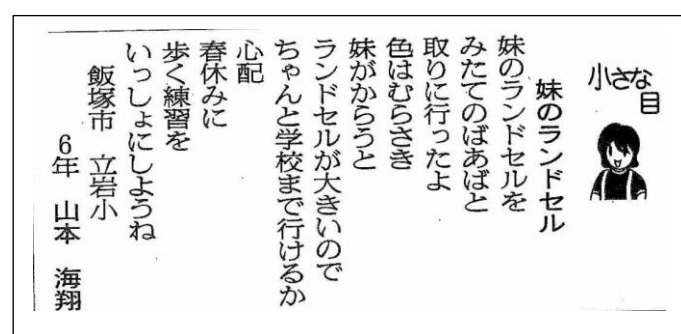 小さな目
妹のランドセル
妹のランドセルを
みたてのばあばと
取りに行ったよ
色はむらさき
妹がからうと
ランドセルが大きいので
ちゃんと学校まで行けるか
心配
春休みに
歩く練習を
いっしょにしようね
飯塚市 立岩小
6年 山本 海翔